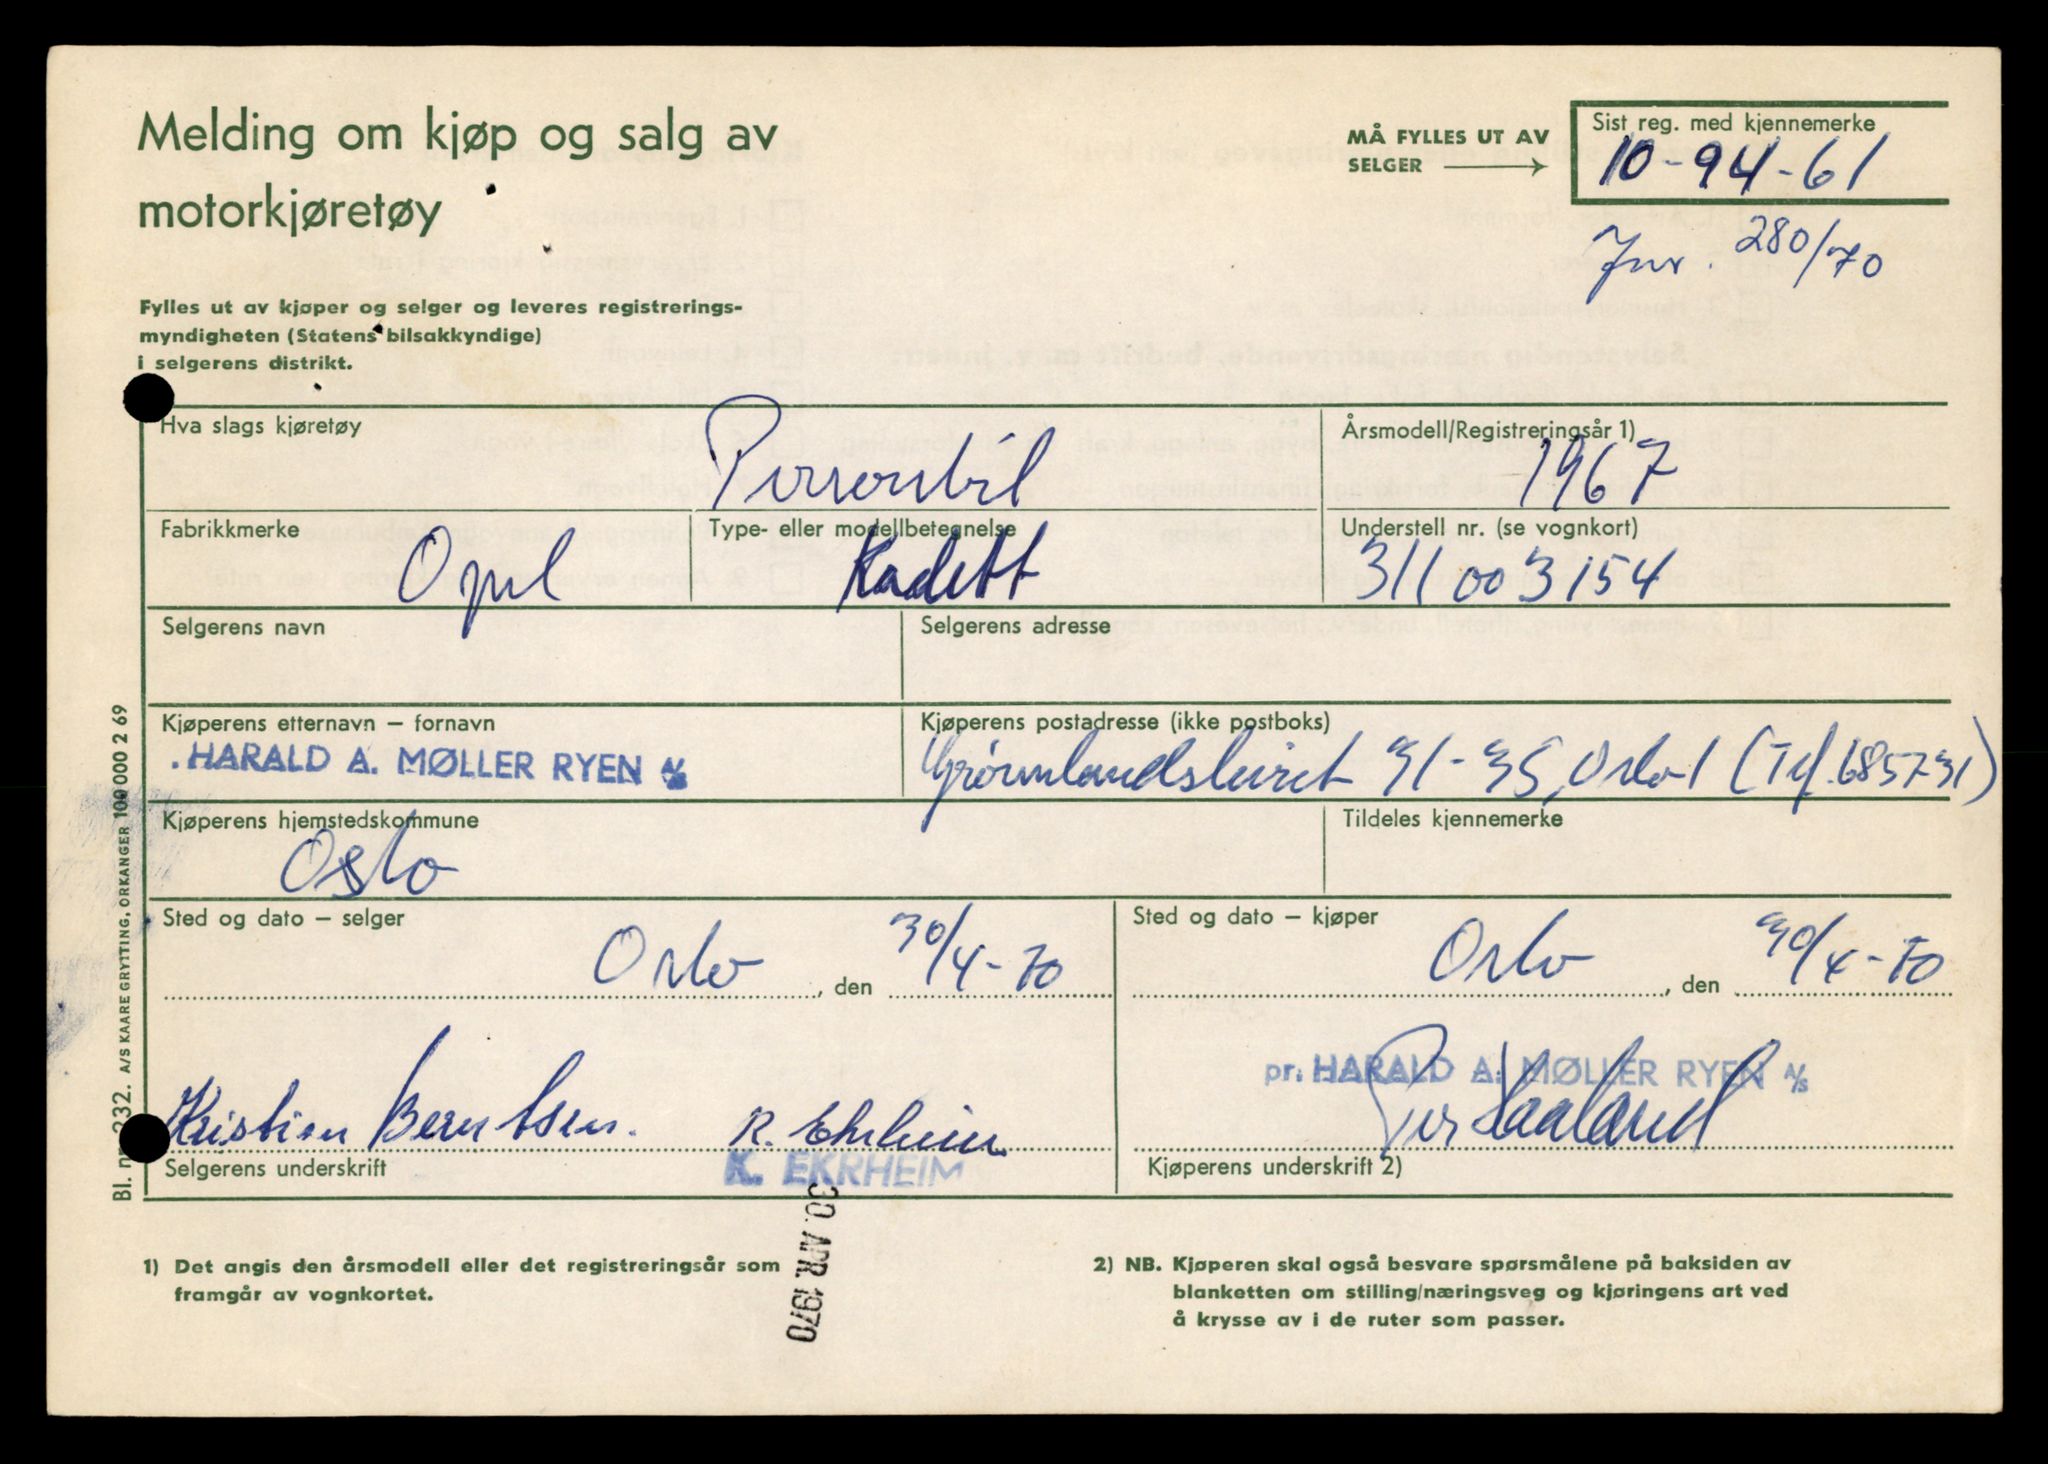 Melding om kjøp og salg av
motorkjøretøy
MÅ FYLLES UT AV
SELGER
Sist reg. med kjennemerke
10-94-61
Jnr. 280/70
Fylles ut av kjøper og selger og leveres registrerings-
myndigheten (Statens bilsakkyndige)
i selgerens distrikt.
Hva slags kjøretøy
Personbil
Årsmodell/Registreringsår 1)
1967
Fabrikkmerke
Opel
Type- eller modellbetegnelse
Kadett
Understell nr. (se vognkort)
311003154
Selgerens navn
Selgerens adresse
Kjøperens etternavn – fornavn
HARALD A. MØLLER RYEN A/S
Kjøperens postadresse (ikke postboks)
Grønlandsleiret 31-35, Oslo 1 (Tlf. 685731)
Kjøperens hjemstedskommune
Oslo
Tildeles kjennemerke
Sted og dato – selger
Oslo, den 30/4-70
Sted og dato – kjøper
Oslo, den 30/4-70
Kristian Berntsen. K. Ekrheim
Selgerens underskrift
K. EKRHEIM
pr. HARALD A. MØLLER RYEN A/S
Per Haaland
Kjøperens underskrift 2)
30. APR. 1970
1) Det angis den årsmodell eller det registreringsår som
framgår av vognkortet.
2) NB. Kjøperen skal også besvare spørsmålene på baksiden av
blanketten om stilling/næringsveg og kjøringens art ved
å krysse av i de ruter som passer.
Bl. nr. 232. A/S KAARE GRYTTING, ORKANGER 100 000 2 69